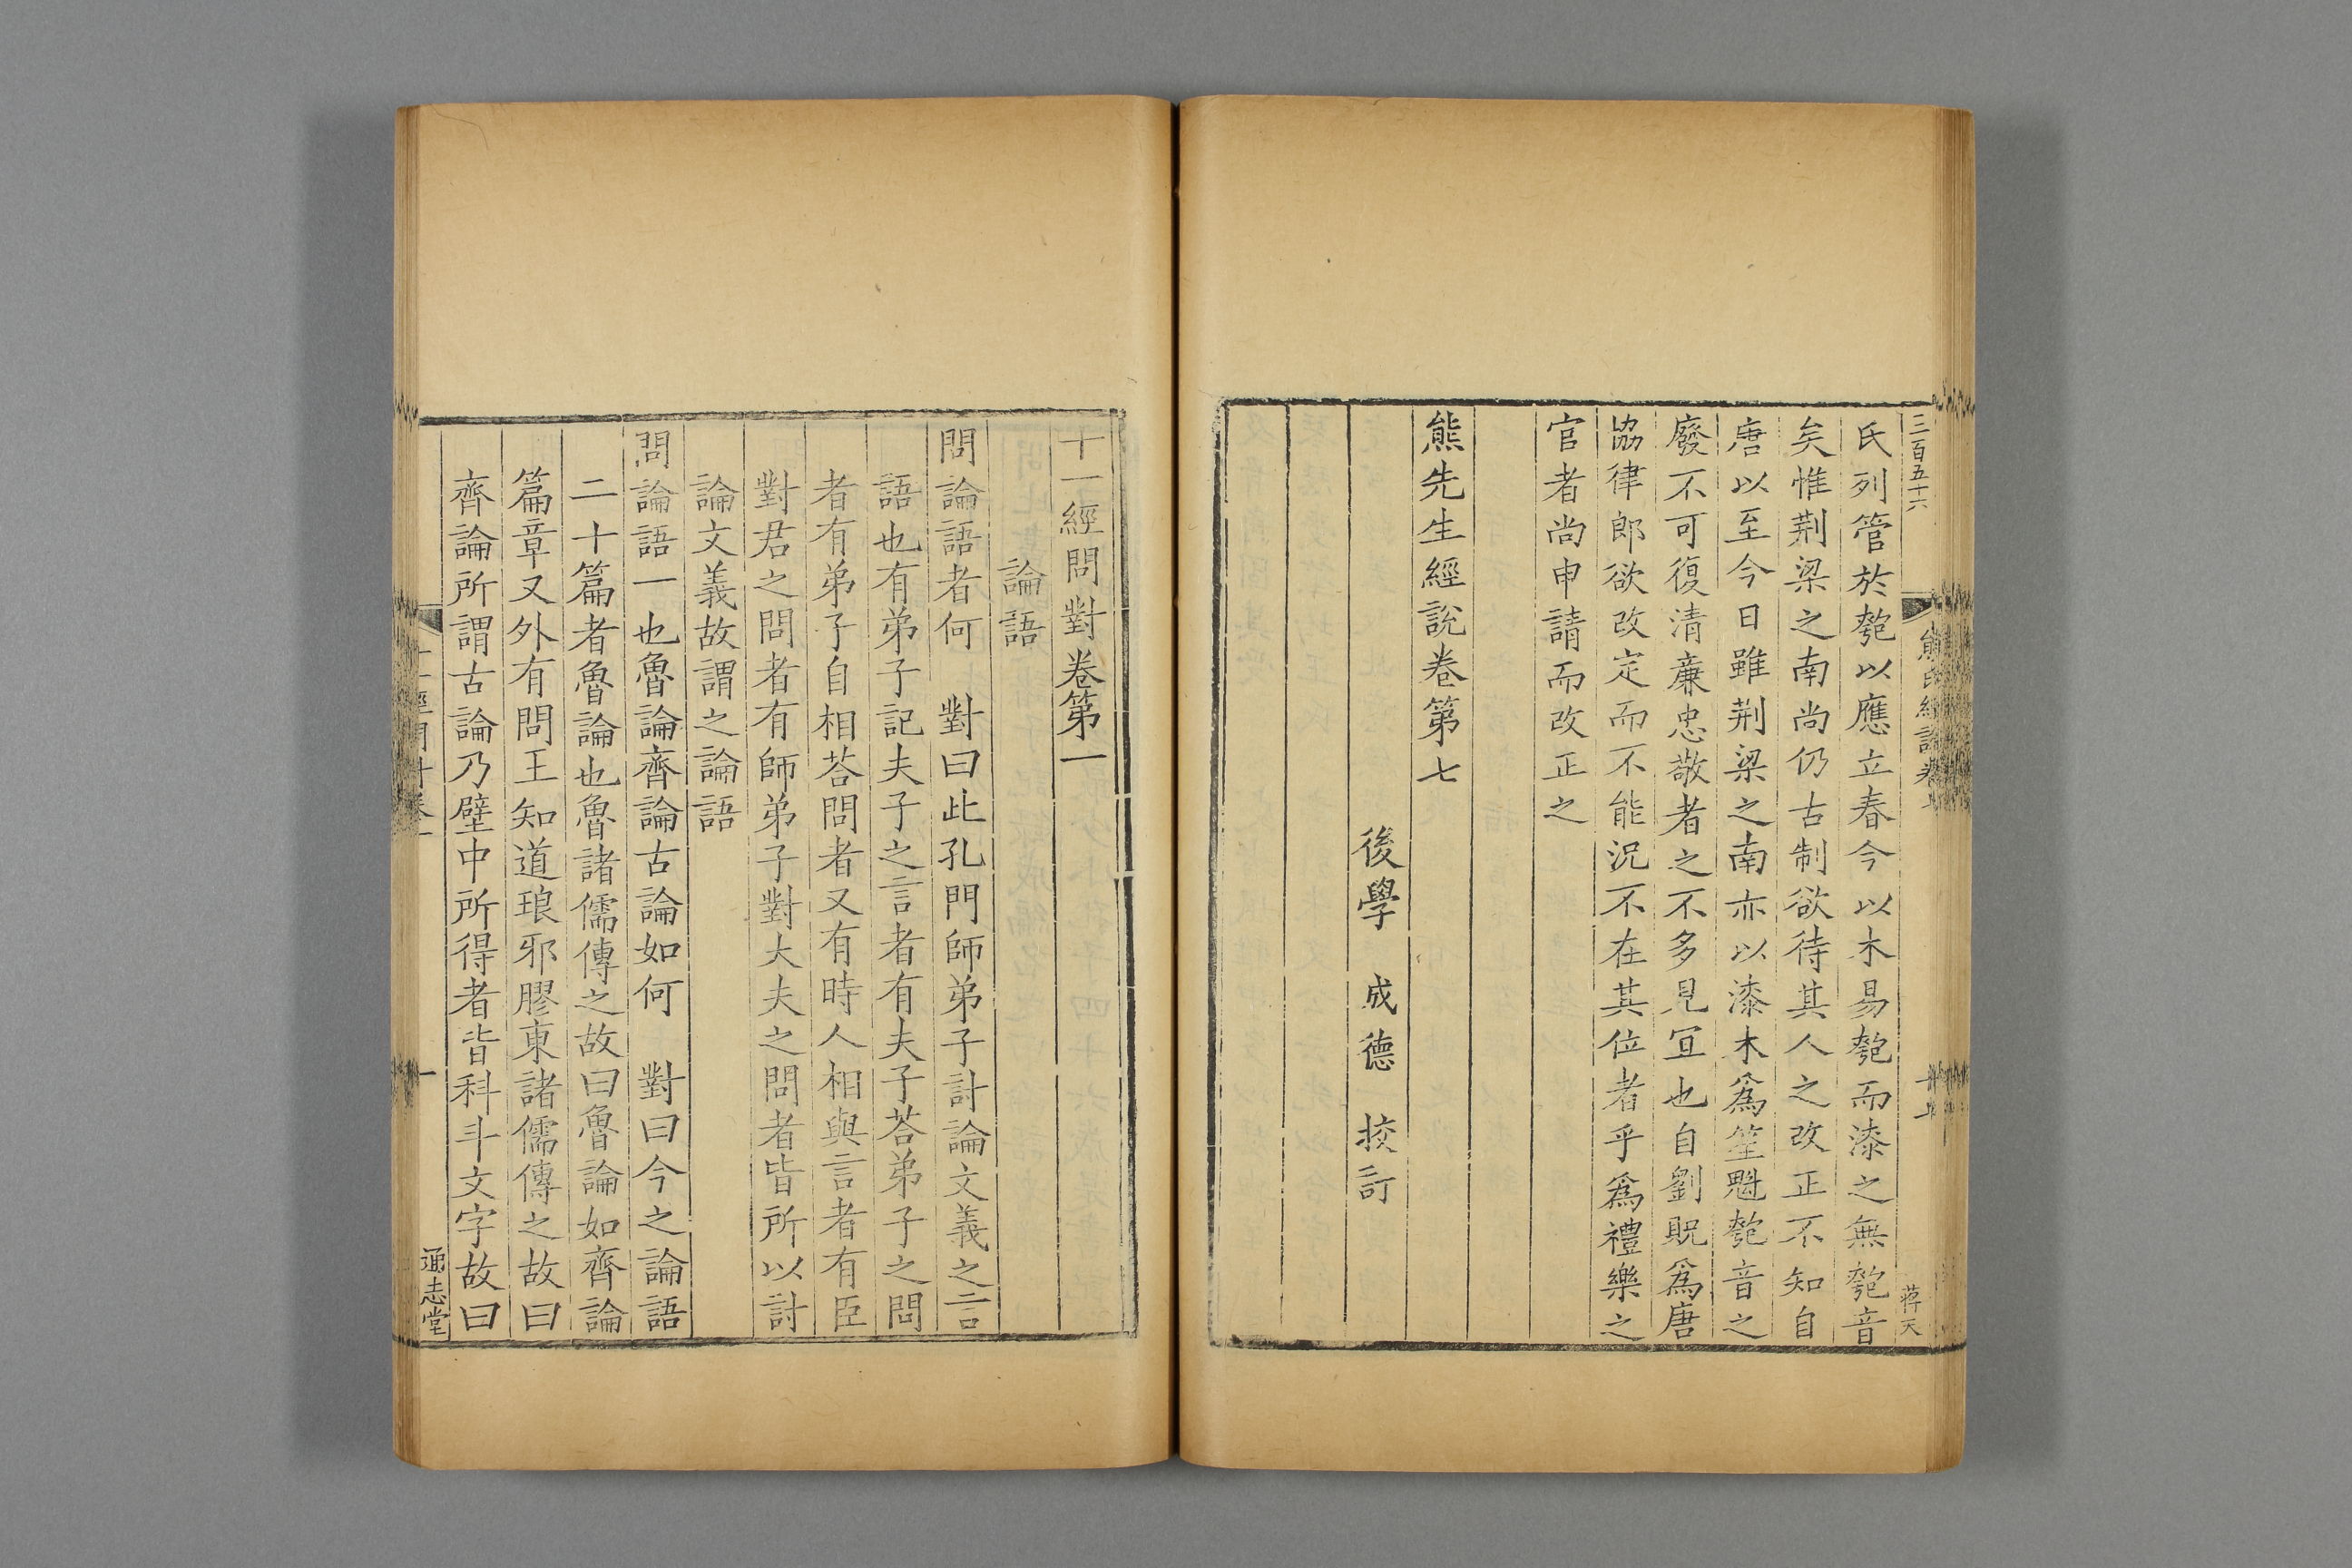 三百五十六
蒋天
氏列管於匏以應立春今以木易匏而漆之無匏音
矣惟荆梁之南尚仍古制欲待其人之改正不知自
唐以至今日雖荆梁之南亦以漆木爲笙魁匏音之
廢不可復清亷忠敬者之不多見冝也自劉貺爲唐
協律郎欲改定而不能況不在其位者乎爲禮樂之
官者尚申請而改正之
熊先生經說卷第七
後學 成德 挍訂
十一經問對卷第一
論語
問論語者何 對曰此孔門師弟子討論文義之言
語也有弟子記夫子之言者有夫子荅弟子之問
者有弟子自相荅問者又有時人相與言者有臣
對君之問者有師弟子對大夫之問者皆所以討
論文義故謂之論語
問論語一也魯論齊論古論如何 對曰今之論語
二十篇者魯論也魯諸儒傳之故曰魯論如齊論
篇章又外有問王知道琅邪膠東諸儒傳之故曰
齊論所謂古論乃壁中所得者皆科斗文字故曰
一
通志堂